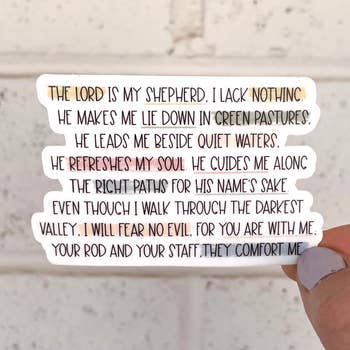 THE LORD IS MY SHEPHERD, I LACK NOTHING
HE MAKES ME LIE DOWN IN GREEN PASTURES,
HE LEADS ME BESIDE QUIET WATERS,
HE REFRESHES MY SOUL HE GUIDES ME ALONG
THE RIGHT PATHS FOR HIS NAME'S SAKE
EVEN THOUGH I WALK THROUGH THE DARKEST
VALLEY, I WILL FEAR NO EVIL, FOR YOU ARE WITH ME,
YOUR ROD AND YOUR STAFF, THEY COMFORT ME